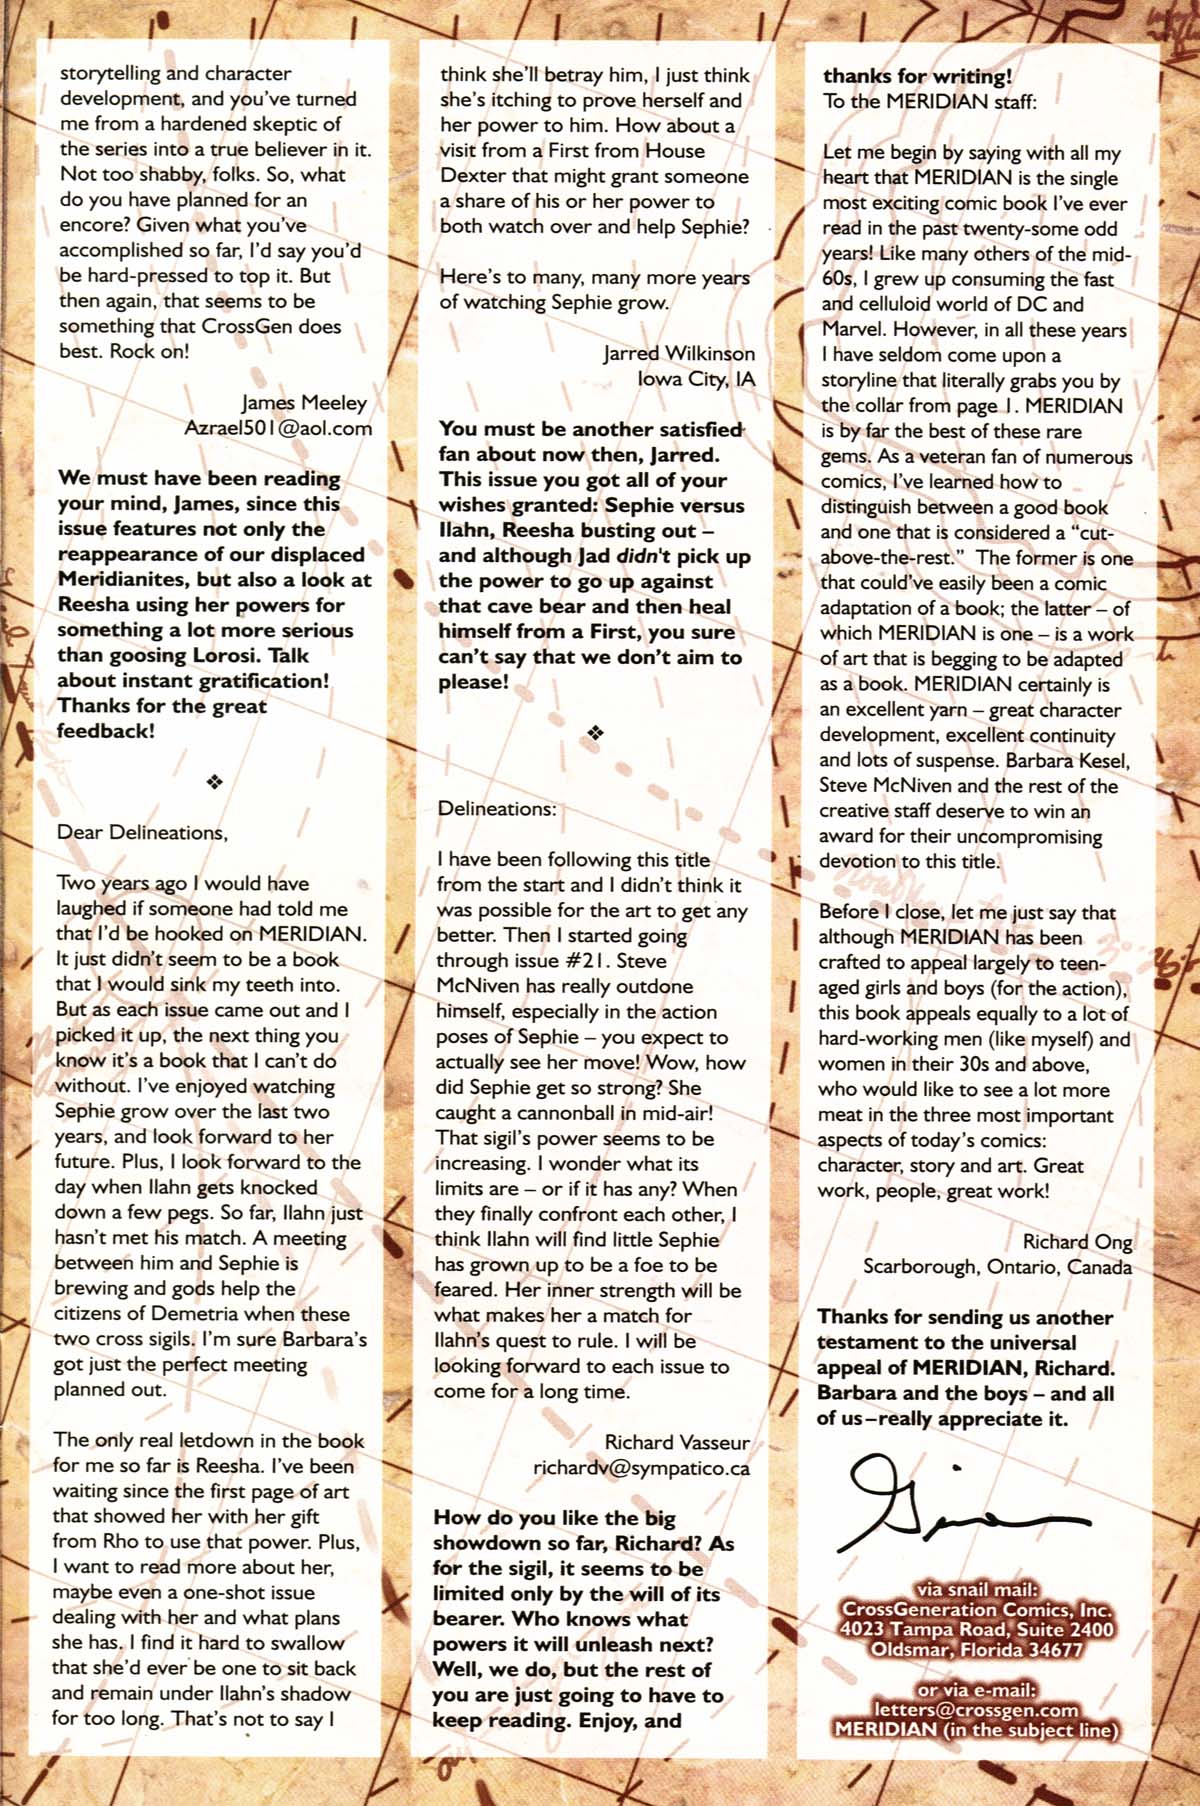 storytelling and character
development, and you've turned
me from a hardened skeptic of
the series into a true believer in it.
Not too shabby, folks. So, what
do you have planned for an
encore? Given what you've
accomplished so far, I'd say you'd
be hard-pressed to top it. But
then again, that seems to be
something that CrossGen does
best. Rock on!
James Meeley
Azrael501@aol.com
We must have been reading
your mind, James, since this
issue features not only the
reappearance of our displaced
Meridianites, but also a look at
Reesha using her powers for
something a lot more serious
than goosing Lorosi. Talk
about instant gratification!
Thanks for the great
feedback!
❖
Dear Delineations,
Two years ago I would have
laughed if someone had told me
that I'd be hooked on MERIDIAN.
It just didn't seem to be a book
that I would sink my teeth into.
But as each issue came out and I
picked it up, the next thing you
know it's a book that I can't do
without. I've enjoyed watching
Sephie grow over the last two
years, and look forward to her
future. Plus, I look forward to the
day when Ilahn gets knocked
down a few pegs. So far, Ilahn just
hasn't met his match. A meeting
between him and Sephie is
brewing and gods help the
citizens of Demetria when these
two cross sigils. I'm sure Barbara's
got just the perfect meeting
planned out.
The only real letdown in the book
for me so far is Reesha. I've been
waiting since the first page of art
that showed her with her gift
from Rho to use that power. Plus,
I want to read more about her,
maybe even a one-shot issue
dealing with her and what plans
she has. I find it hard to swallow
that she'd ever be one to sit back
and remain under Ilahn's shadow
for too long. That's not to say I
think she'll betray him, I just think
she's itching to prove herself and
her power to him. How about a
visit from a First from House
Dexter that might grant someone
a share of his or her power to
both watch over and help Sephie?
Here's to many, many more years
of watching Sephie grow.
Jarred Wilkinson
Iowa City, IA
You must be another satisfied
fan about now then, Jarred.
This issue you got all of your
wishes granted: Sephie versus
Ilahn, Reesha busting out –
and although Jad didn't pick up
the power to go up against
that cave bear and then heal
himself from a First, you sure
can't say that we don't aim to
please!
❖
Delineations:
I have been following this title
from the start and I didn't think it
was possible for the art to get any
better. Then I started going
through issue #21. Steve
McNiven has really outdone
himself, especially in the action
poses of Sephie – you expect to
actually see her move! Wow, how
did Sephie get so strong? She
caught a cannonball in mid-air!
That sigil's power seems to be
increasing. I wonder what its
limits are – or if it has any? When
they finally confront each other, I
think Ilahn will find little Sephie
has grown up to be a foe to be
feared. Her inner strength will be
what makes her a match for
Ilahn's quest to rule. I will be
looking forward to each issue to
come for a long time.
Richard Vasseur
richardv@sympatico.ca
How do you like the big
showdown so far, Richard? As
for the sigil, it seems to be
limited only by the will of its
bearer. Who knows what
powers it will unleash next?
Well, we do, but the rest of
you are just going to have to
keep reading. Enjoy, and
thanks for writing!
To the MERIDIAN staff:
Let me begin by saying with all my
heart that MERIDIAN is the single
most exciting comic book I've ever
read in the past twenty-some odd
years! Like many others of the mid-
60s, I grew up consuming the fast
and celluloid world of DC and
Marvel. However, in all these years
I have seldom come upon a
storyline that literally grabs you by
the collar from page 1. MERIDIAN
is by far the best of these rare
gems. As a veteran fan of numerous
comics, I've learned how to
distinguish between a good book
and one that is considered a "cut-
above-the-rest." The former is one
that could've easily been a comic
adaptation of a book; the latter – of
which MERIDIAN is one – is a work
of art that is begging to be adapted
as a book. MERIDIAN certainly is
an excellent yarn – great character
development, excellent continuity
and lots of suspense. Barbara Kesel,
Steve McNiven and the rest of the
creative staff deserve to win an
award for their uncompromising
devotion to this title.
Before I close, let me just say that
although MERIDIAN has been
crafted to appeal largely to teen-
aged girls and boys (for the action),
this book appeals equally to a lot of
hard-working men (like myself) and
women in their 30s and above,
who would like to see a lot more
meat in the three most important
aspects of today's comics:
character, story and art. Great
work, people, great work!
Richard Ong
Scarborough, Ontario, Canada
Thanks for sending us another
testament to the universal
appeal of MERIDIAN, Richard.
Barbara and the boys – and all
of us–really appreciate it.
Gina
via snail mail:
CrossGeneration Comics, Inc.
4023 Tampa Road, Suite 2400
Oldsmar, Florida 34677
or via e-mail:
letters@crossgen.com
MERIDIAN (in the subject line)